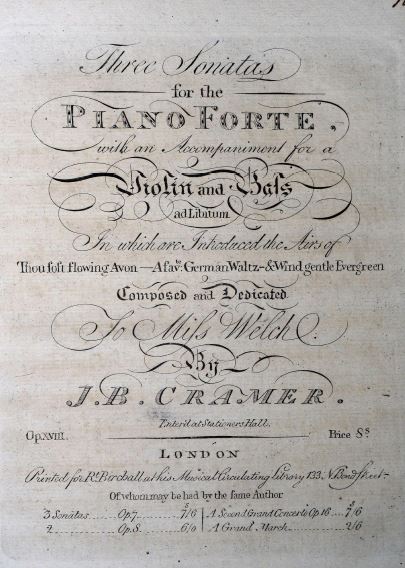 Three Sonatas
for the
PIANO FORTE,
with an Accompaniment for a
Violin and Baſs
ad Libitum
In which are Introduced the Airs of
Thou soft flowing Avon — A fav.te German Waltz — & Wind gentle Evergreen
Composed and Dedicated
To Miſs Welch.
By
J. B. CRAMER.
Enter'd at Stationers Hall.
Op. XVIII. Price 8s
LONDON
Printed for Rt. Birchall at his Musical Circulating Library 133, N. Bond Street
Of whom may be had by the same Author
3 Sonatas Op. 7 7/6 A Second Grand Concerto Op 16 7/6
2 Op. 8 6/0 A Grand March 2/6